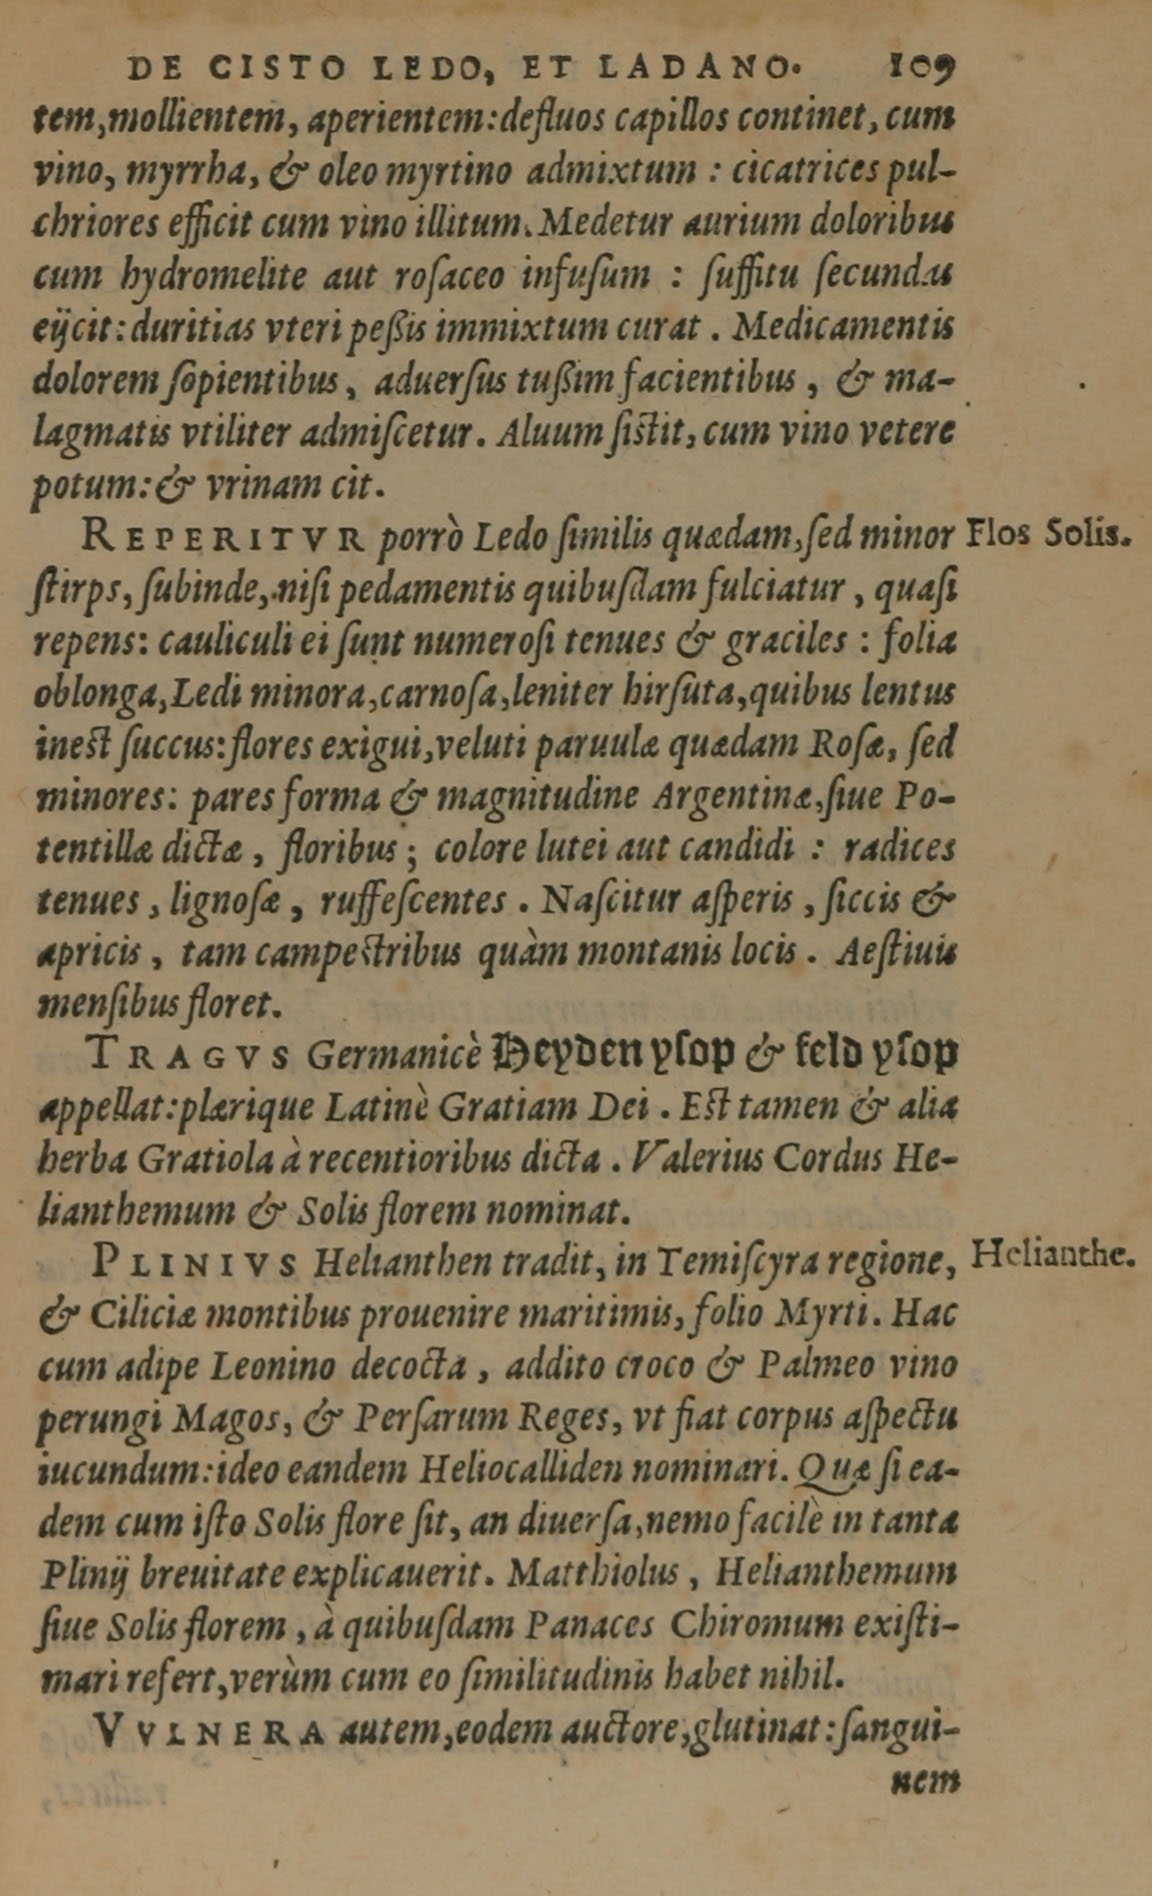 DE CISTO LEDO, ET LADANO. 109
tem, mollientem, aperientem: defluos capillos continet, cum
vino, myrrha, & oleo myrtino admixtum : cicatrices pul-
chriores efficit cum vino illitum. Medetur aurium doloribus
cum hydromelite aut rosaceo infusum : suffitu secundas
eijcit: duritias vteri peßis immixtum curat . Medicamentis
dolorem sopientibus, aduersus tußim facientibus , & ma-
lagmatis vtiliter admiscetur. Aluum sistit, cum vino vetere
potum: & vrinam cit.
REPERITVR porrò Ledo similis quædam, sed minor Flos Solis.
stirps, subinde, nisi pedamentis quibusdam fulciatur , quasi
repens: cauliculi ei sunt numerosi tenues & graciles : folia
oblonga, Ledi minora, carnosa, leniter hirsuta, quibus lentus
inest succus: flores exigui, veluti paruulæ quædam Rosæ, sed
minores: pares forma & magnitudine Argentinæ, siue Po-
tentillæ dictæ , floribus ; colore lutei aut candidi : radices
tenues , lignosæ , ruffescentes . Nascitur asperis , siccis &
apricis , tam campestribus quàm montanis locis . Aestiuis
mensibus floret.
TRAGVS Germanicè Heyden ysop & feld ysop
appellat: plærique Latinè Gratiam Dei . Est tamen & alia
herba Gratiola à recentioribus dicta . Valerius Cordus He-
lianthemum & Solis florem nominat.
PLINIVS Helianthen tradit, in Temiscyra regione, Helianthe.
& Ciliciæ montibus prouenire maritimis, folio Myrti. Hac
cum adipe Leonino decocta , addito croco & Palmeo vino
perungi Magos, & Persarum Reges, vt fiat corpus aspectu
iucundum: ideo eandem Heliocalliden nominari. Quæ si ea-
dem cum isto Solis flore sit, an diuersa, nemo facilè in tanta
Plinij breuitate explicauerit. Matthiolus , Helianthemum
siue Solis florem , à quibusdam Panaces Chiromum existi-
mari refert, verùm cum eo similitudinis habet nihil.
VVLNERA autem, eodem auctore, glutinat: sangui-
nem